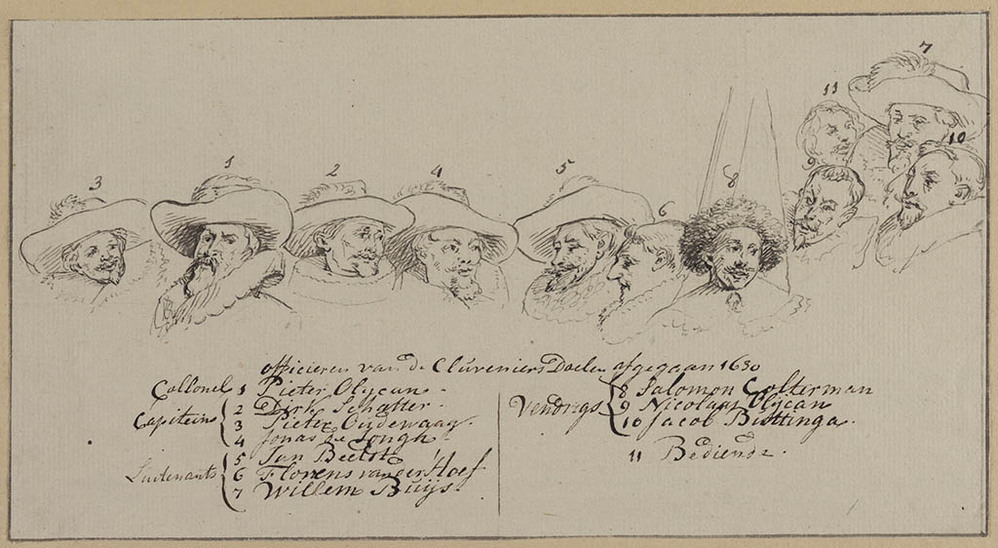 7
11
10
3
1
2
4
5
6
8
9
officieren van de Cluveniers Doelen afgegaan 1630
Collonel 1 Pieter Olycan.
Capiteins 2 Dirk Schatter.
3 Pieter Oudewaag.
4 Jonas de Jongh.
Luitenants 5 Jan Beelt
6 Florens van der Hoef
7 Willem Buijs.
Vendrigs 8 Salomon Colterman
9 Nicolaas Olycan
10 Jacob Buttinga.
11 Bediende.